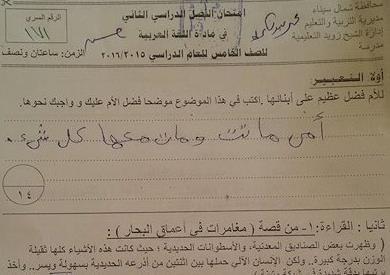 محافظة شمال سيناء
مديرية التربية والتعليم
إدارة الشيخ زويد التعليمية
مدرسة
امتحان الفصل الدراسي الثاني
في مادة اللغة العربية
للصف الخامس للعام الدراسي ٢٠١٦/٢٠١٥
الرقم السري
١٧١
الزمن: ساعتان ونصف
أولا التعبير
للأم فضل عظيم على أبنائها. اكتب في هذا الموضوع موضحا فضل الأم عليك و واجبك نحوها.
أمى ماتت ومات معها كل شىء.
١٤
ثانيا : القراءة: ١- من قصة ( مغامرات في أعماق البحار ) :
( وظهرت بعض الصناديق المعدنية، والأسطوانات الحديدية ؛ حيث كانت هذه الأشياء كلها ثقيلة
الوزن بدرجة كبيرة.. ولكن الإنسان الآلي حملها بين اثنتين من أذرعه الحديدية بسهولة ويسر.. وأخذ